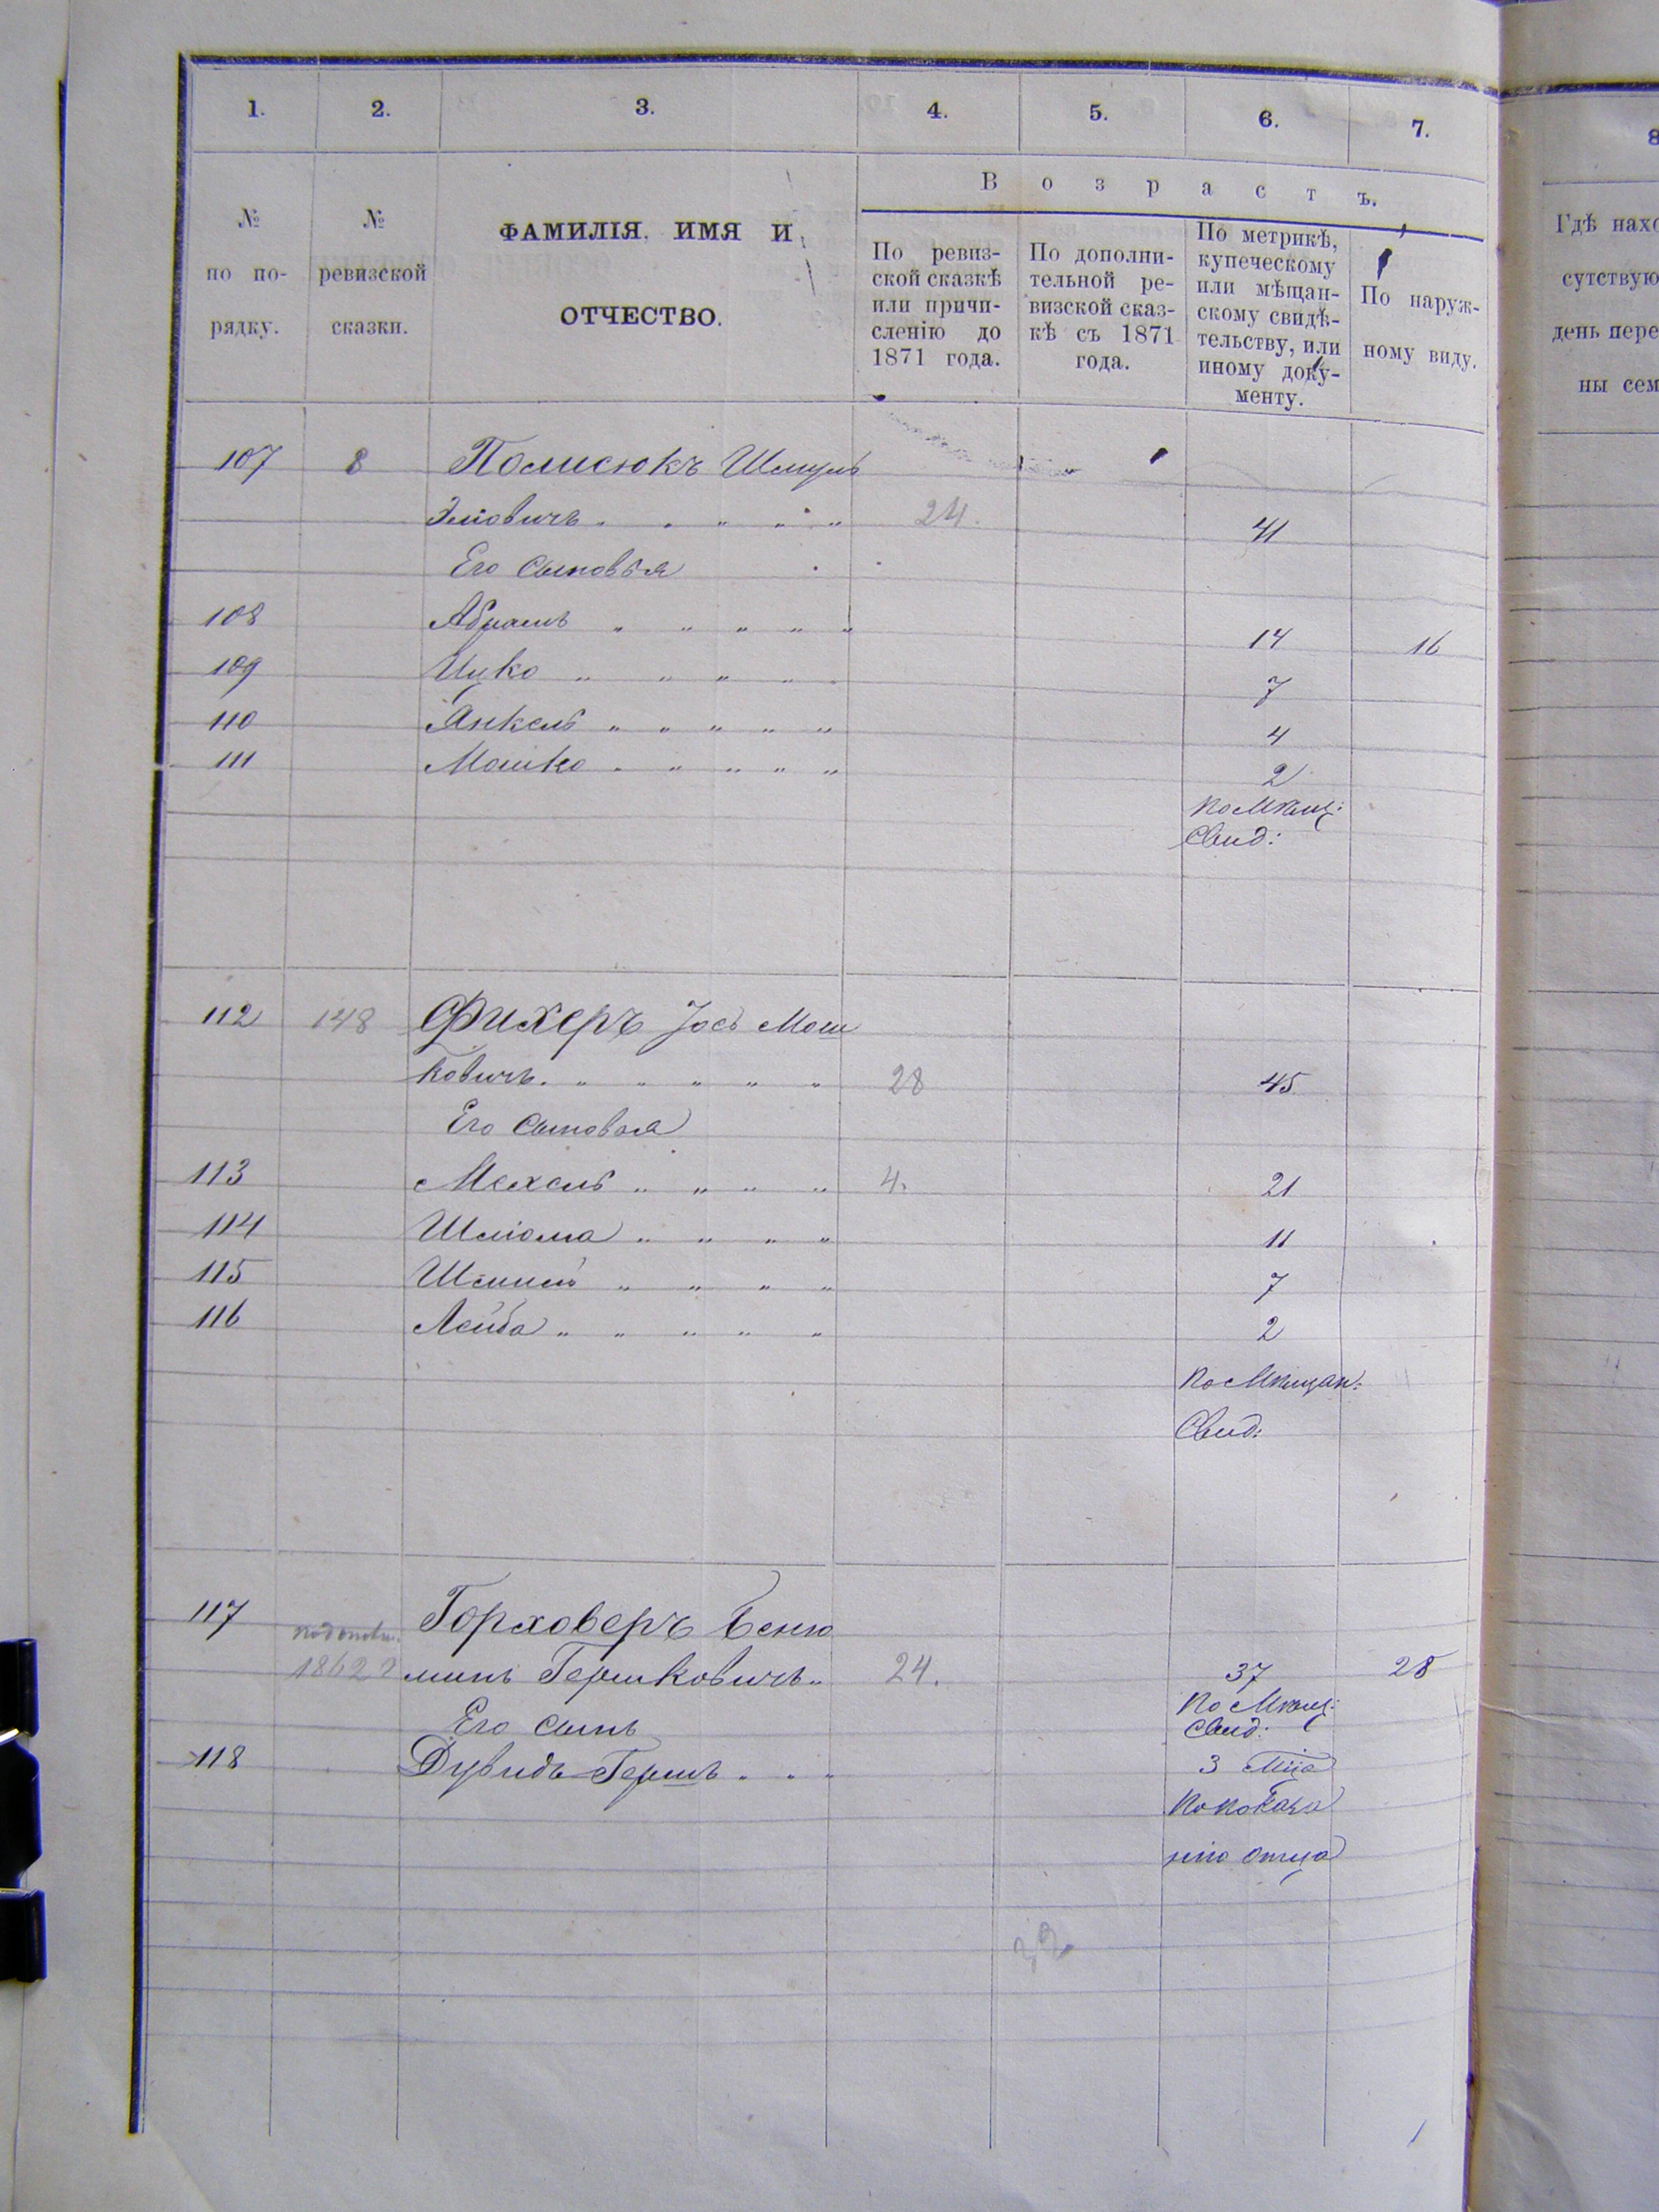 1. 2. 3. 4. 5. 6. 7.
8
№ по порядку.
№ ревизской сказки.
ФАМИЛІЯ, ИМЯ И
ОТЧЕСТВО.
Возрастъ.
По ревиз-
ской сказкѣ
или причи-
сленію до
1871 года.
По дополни-
тельной ре-
визской сказ-
кѣ съ 1871
года.
По метрикѣ,
купеческому
или мѣщан-
скому свидѣ-
тельству, или
иному доку-
менту.
По наруж-
ному виду.
Гдѣ нахо
сутствую
день пере
ны сем
107 8 Полисюкъ Шмуль
Эліовичъ 24. 41
Его Сыновья
108 Абрамъ 14 16
109 Ицко 7
110 Янкель 4
111 Мошко 2
по Мѣщ:
Свид:
112 148 Фихеръ Іось Мош
ковичъ. 28 45
Его Сыновья
113 Мехель 4. 21
114 Шліома 11
115 7
116 Лейба 2
по Мѣщан:
Свид:
117 Горховеръ Беню
1862 минъ Гершковичъ 24. 37 28
по Мѣщ:
Его сынъ Свид:
118 Дувидъ-Гершъ 3 Мца
по показа
нію отца